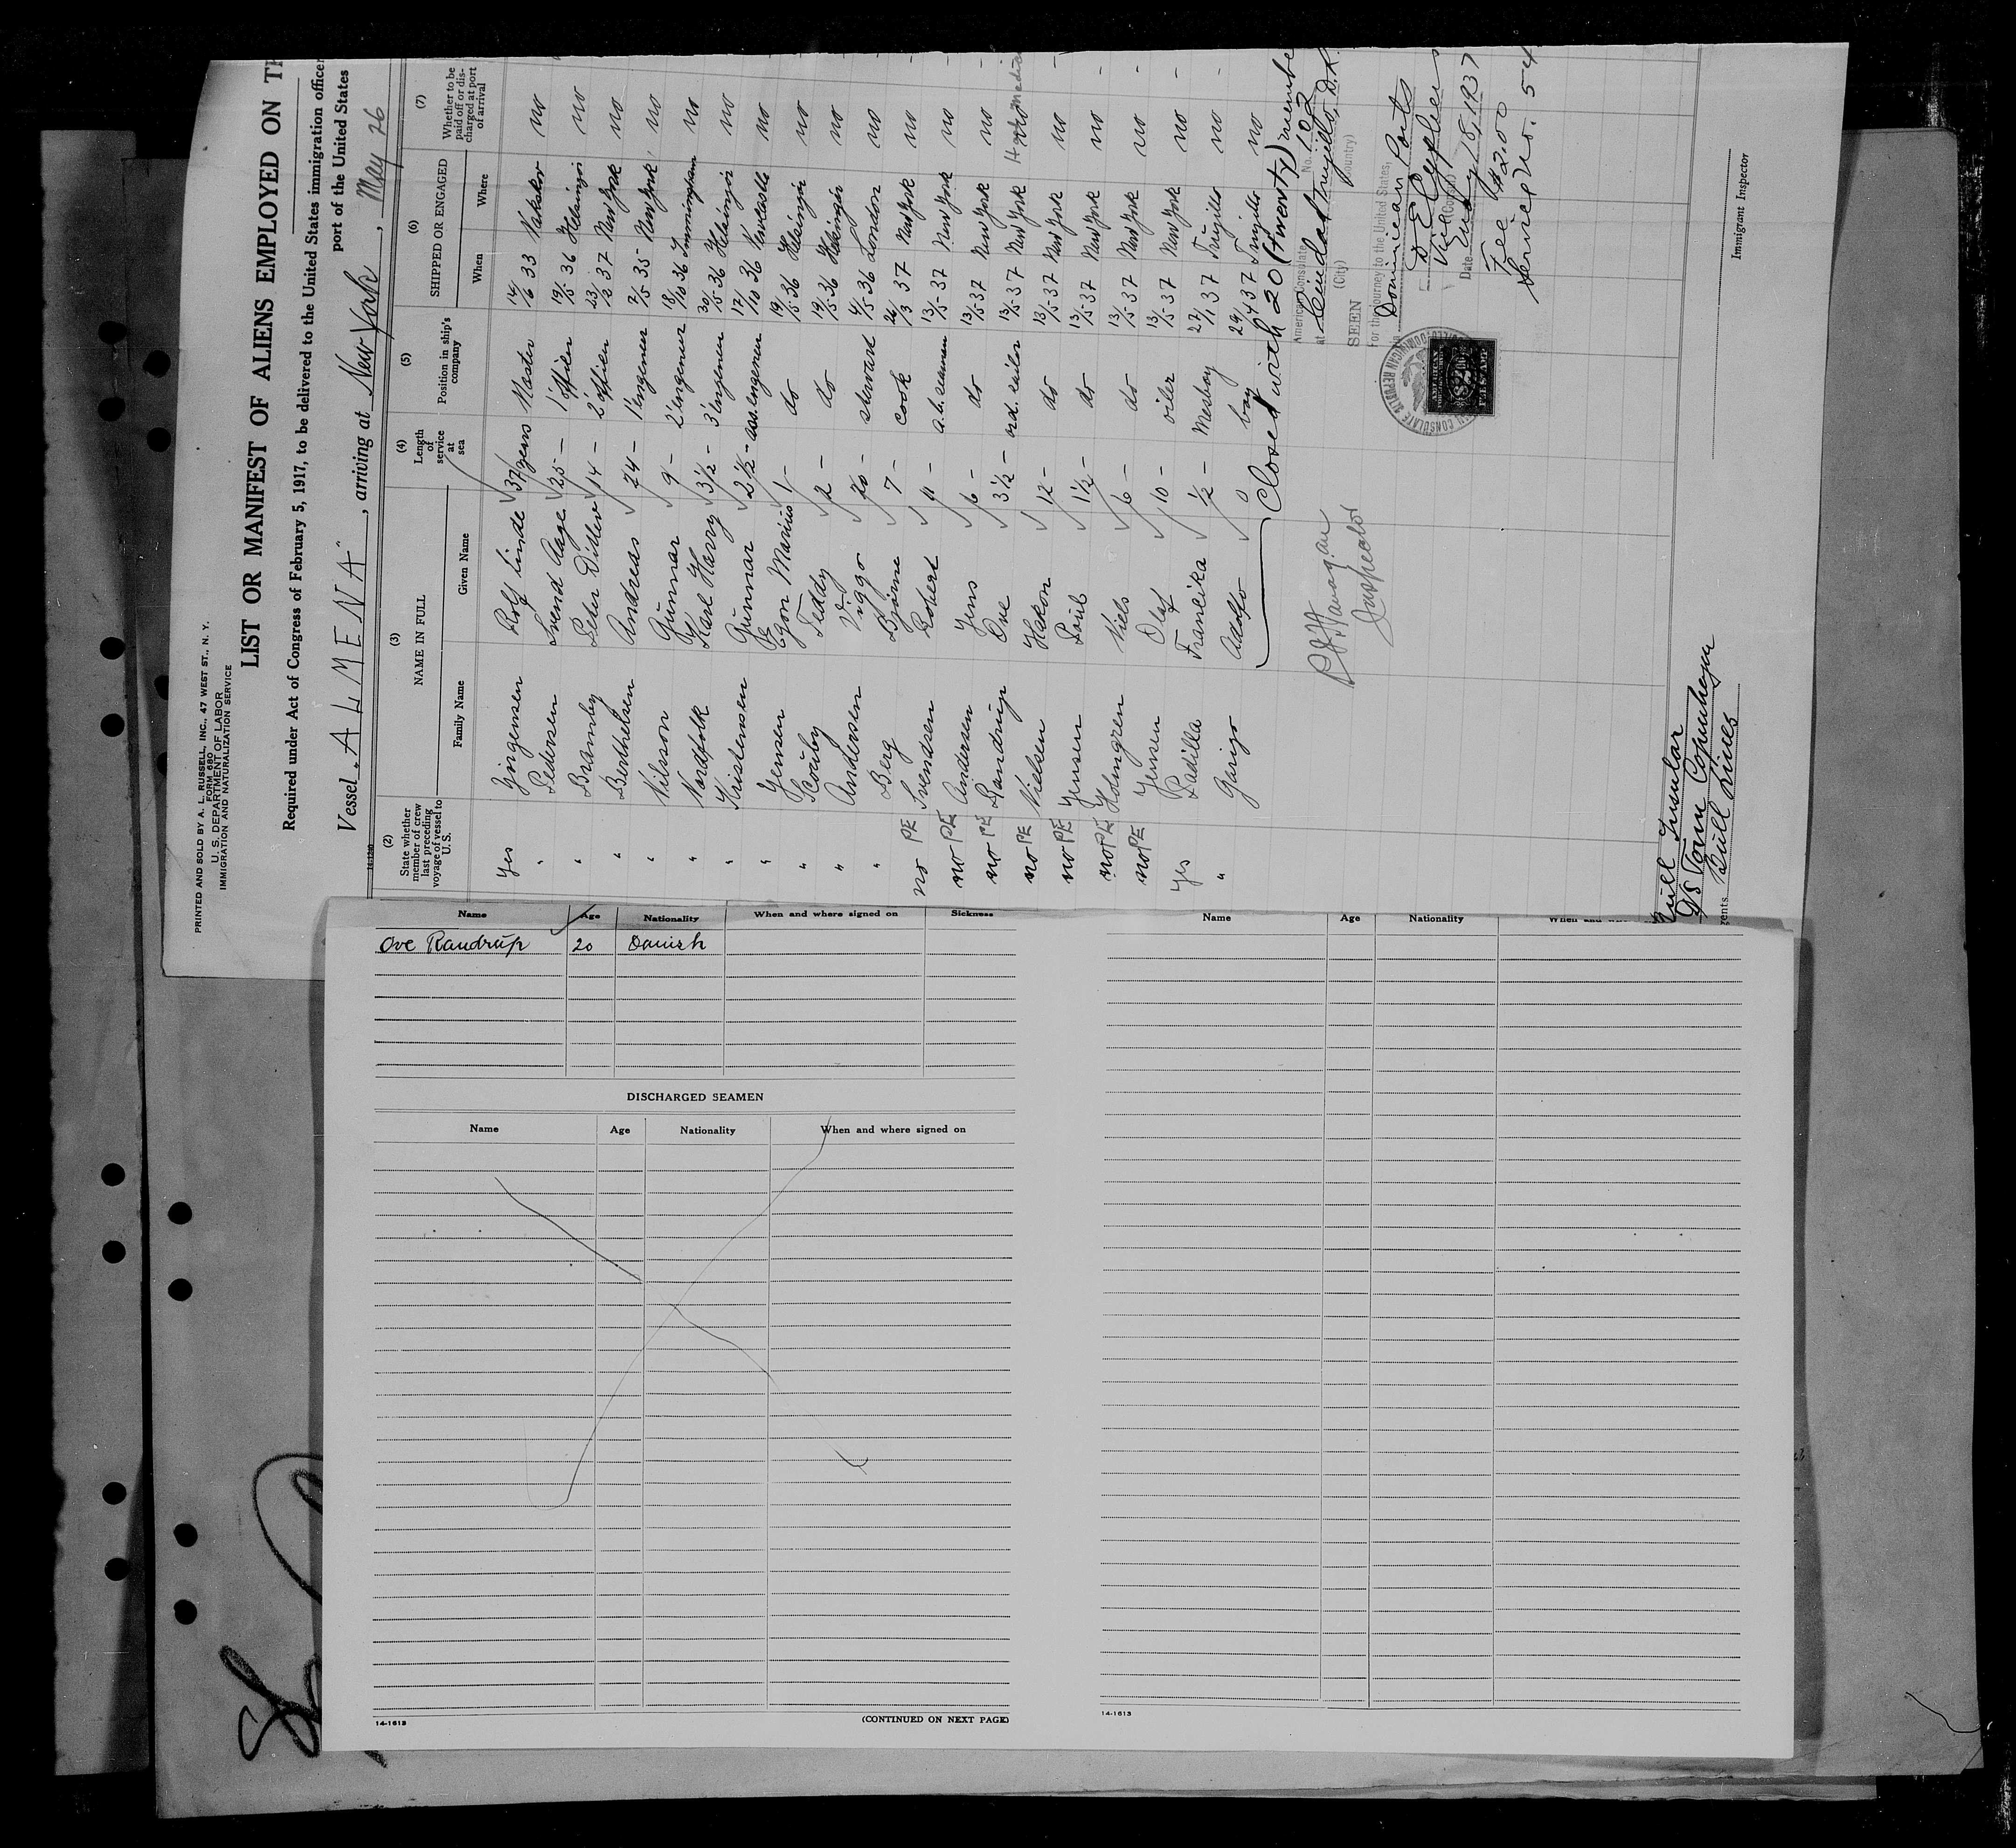 PRINTED AND SOLD BY A. L. RUSSELL, INC., 47 WEST ST., N. Y.
FORM 680
U. S. DEPARTMENT OF LABOR
IMMIGRATION AND NATURALIZATION SERVICE
LIST OR MANIFEST OF ALIENS EMPLOYED ON TH
Required under Act of Congress of February 5, 1917, to be delivered to the United States immigration officer
port of the United States
Vessel ALMENA, arriving at New York, May 26
(2) (3) (4) (5) (6) (7)
State whether member of crew last preceding voyage of vessel to U. S. NAME IN FULL Length of service at sea Position in ship's company SHIPPED OR ENGAGED Whether to be paid off or discharged at port of arrival
Family Name Given Name When Where
Yes Jörgensen Rolf Linde 37 Master 14/6 33 Nakskov no
" Pedersen Svend Aage 25 - 1' officer 19/5 36 Helsingör no
" Bramby Peter Ditlev 14 - 2' officer 23/2 37 New York no
" Berthelsen Andreas 24 - 1' engeneer 2/5 35 New York no
" Nilsson Gunnar 9 - 2' engeneer 18/10 36 Immingham no
" Nordfolk Karl Harry 3½ - 3' engeneer 30/5 36 Helsingör no
" Kristensen Gunnar 2½ - ass. engeneer 17/10 36 Newcastle no
" Jensen Egon Marius 1 - do 19/5 36 Helsingör no
" Scouby Teddy 2 - do 19/5 36 Helsingör no
" Andersen Viggo 20 - steward 4/5 36 London no
" Berg Bjarne 7 - cook 26/3 37 New York no
no PE Svendsen Robert 11 - a.b. seaman 13/5 37 New York no
no PE Andersen Jens 6 - do 13/5 37 New York no
no PE Randrup Ove 3½ - ord. sailor 13/5 37 New York no
no PE Nielsen Hakon 12 - do 13/5 37 New York no
no PE Jensen Poul 1½ - do 13/5 37 New York no
no PE Holmgren Niels 6 - do 13/5 37 New York no
no PE Jensen Olaf 10 - oiler 13/5 37 New York no
Yes Padilla Francika ½ - Mesboy 22/1 37 Trujillo no
" Garijo Adolfo 0 boy 29/4 37 Trujillo no
Closed with 20 (twenty) membe
American Consulate No. 102
at Ciudad Trujillo, D.R.
(City) (Country)
SEEN
For the journey to the United States,
Dominican Ports
Vice Consul
Date 18, 1937
Fee $2.00
Service No. 54
Inspector
Bull Insular
D/S Torm Copenhagen
gents Bull Lines
Immigrant Inspector
Name Age Nationality When and where signed on Sickness
Ove Randrup 20 Danish
DISCHARGED SEAMEN
Name Age Nationality When and where signed on
14-1613 (CONTINUED ON NEXT PAGE)
Name Age Nationality
14-1613